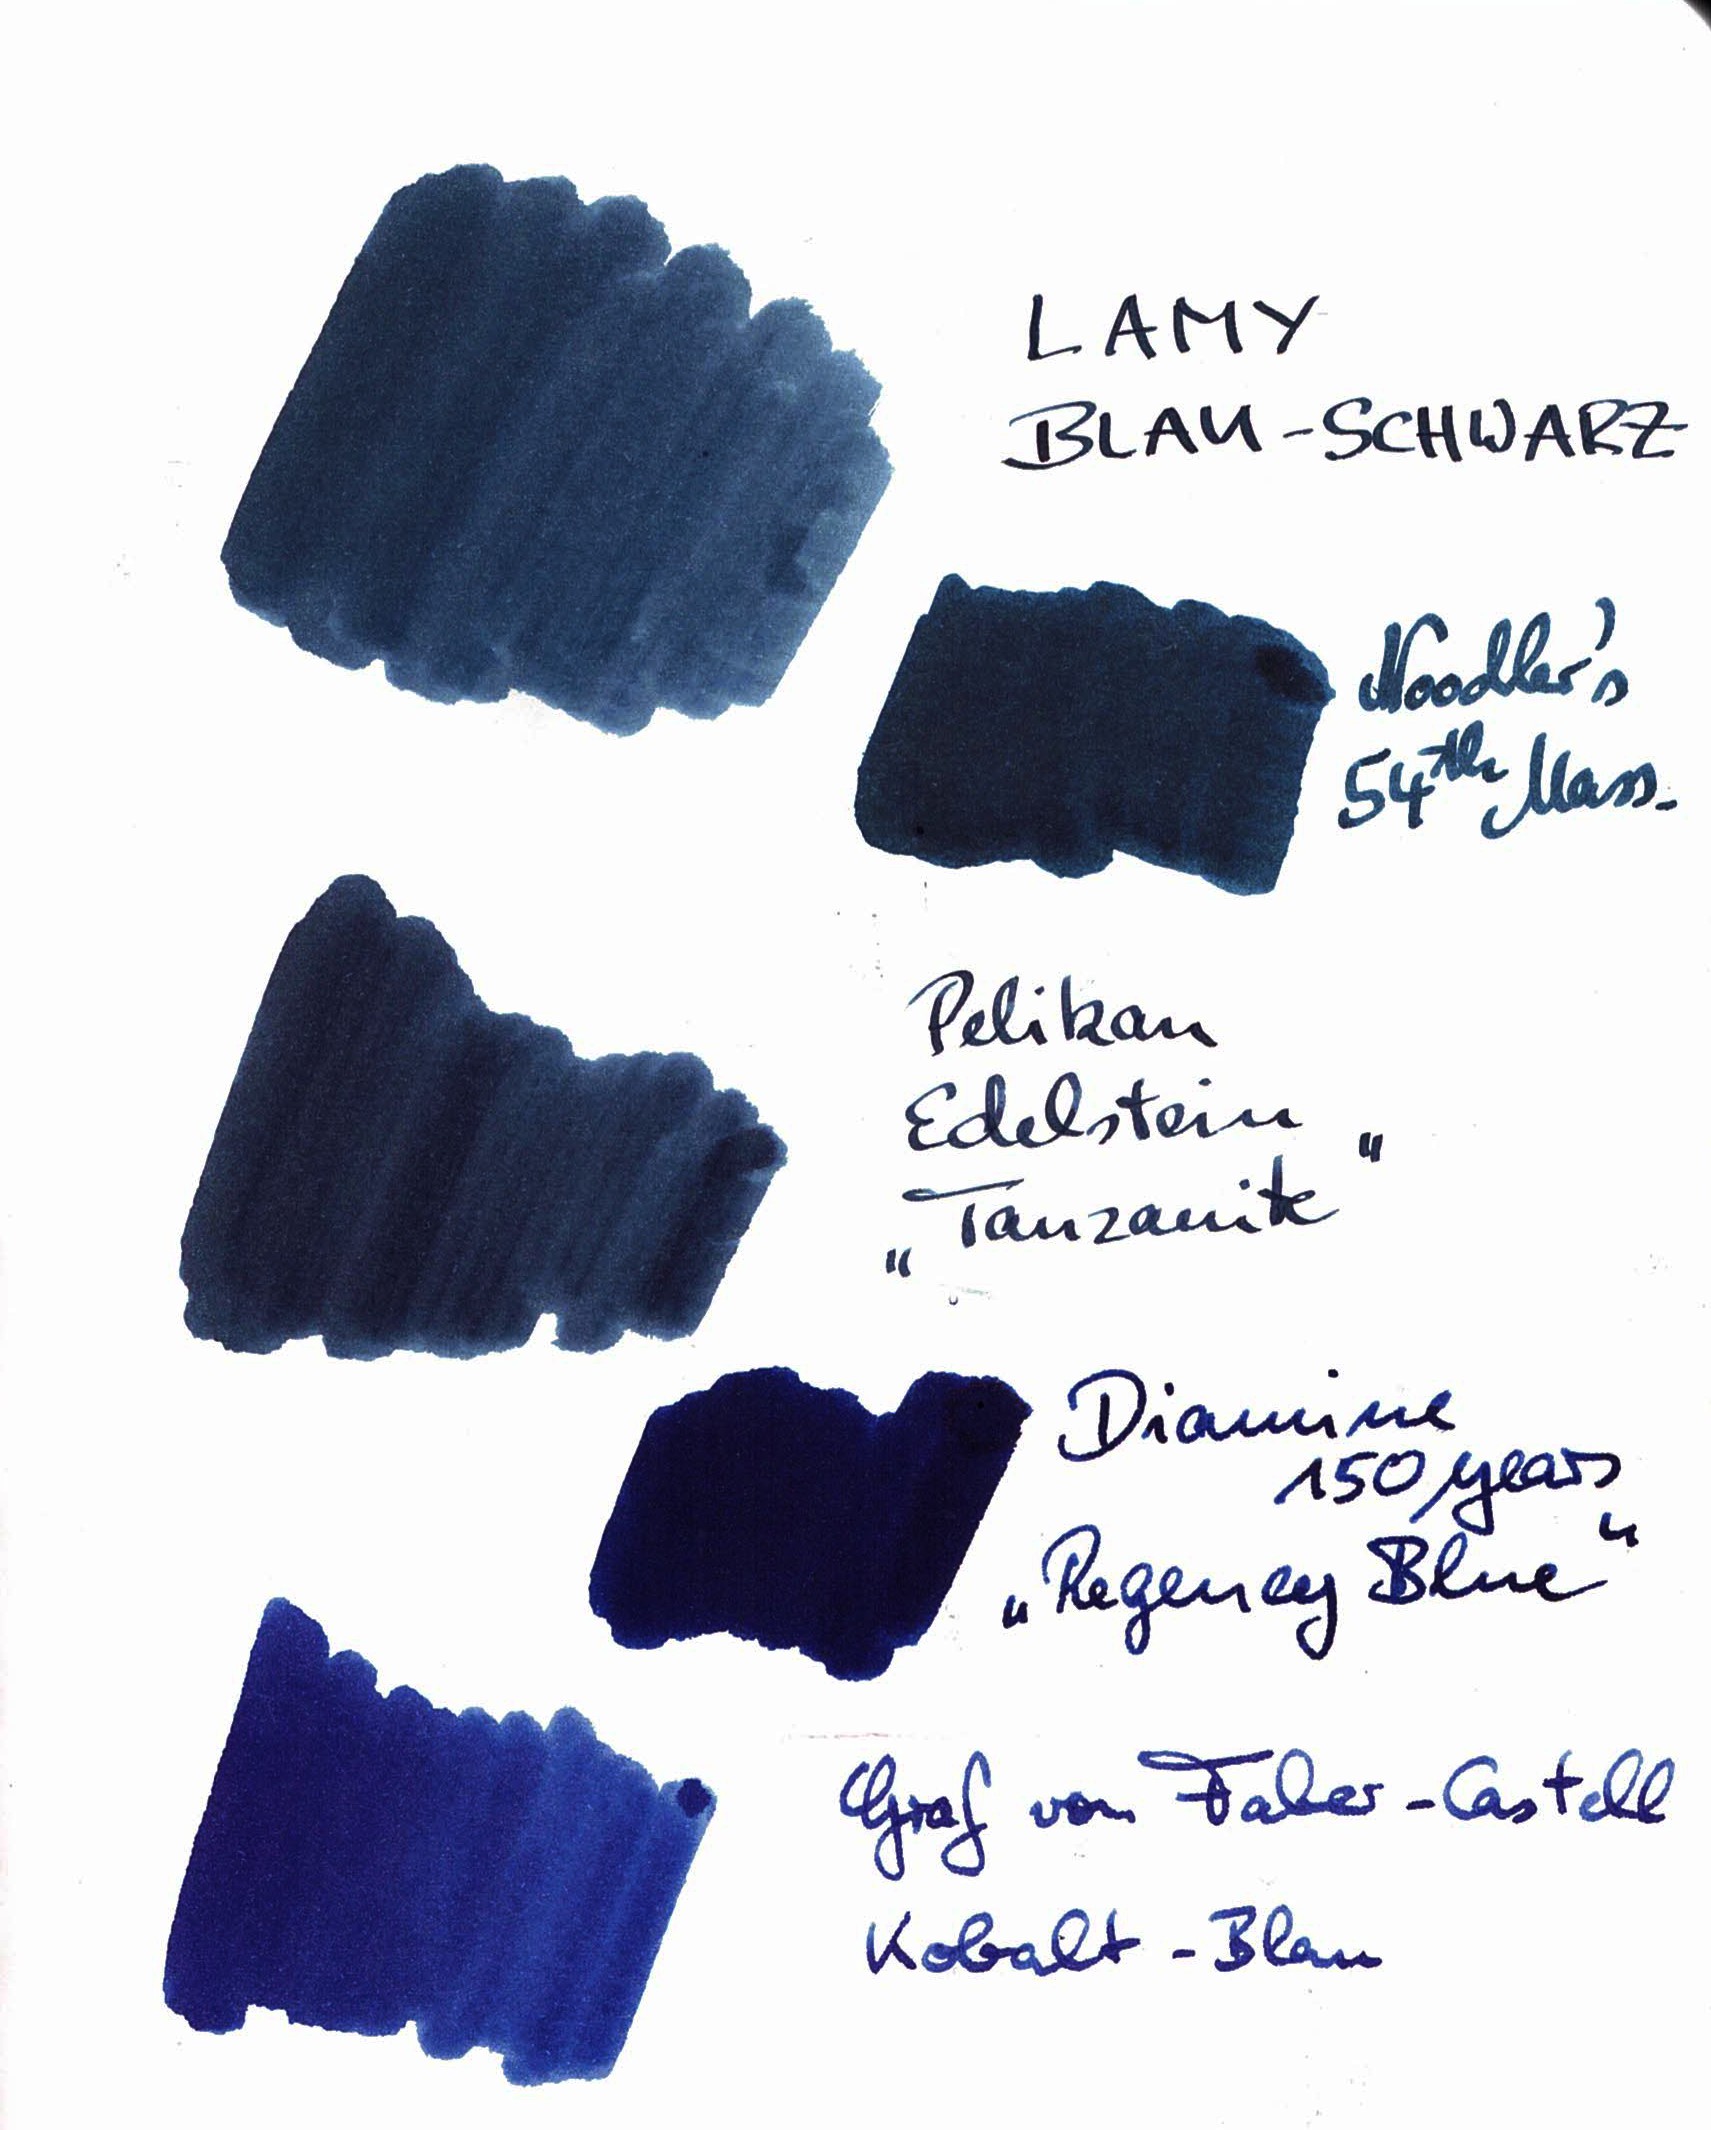 LAMY
BLAU-SCHWARZ
Noodler's
54th Mass.
Pelikan
Edelstein
„Tanzanite“
Diamine
150 years
„Regency Blue“
Graf von Faber-Castell
Kobalt-Blau